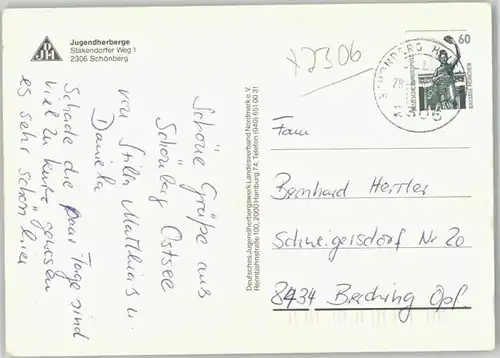 Jugendherberge
Stakendorfer Weg 1
2306 Schönberg
x2306
60
SCHÖNBERG, HOLST
2306
DEUTSCHE BUNDESPOST
BAVARIA MÜNCHEN
Schöne Grüße aus
Schönberg Ostsee
von Matthias u.
Daniela
Schade die paar Tage sind
viel zu kurz gewesen
es sehr schön hier
Deutsches Jugendherbergswerk Landesverband Nordmark e. V.
Rennbahnstraße 100, 2000 Hamburg 74, Telefon (040) 651 00 31
Fam
Bernhard Hertler
Schweigersdorf Nr 20
8434 Berching Opf.